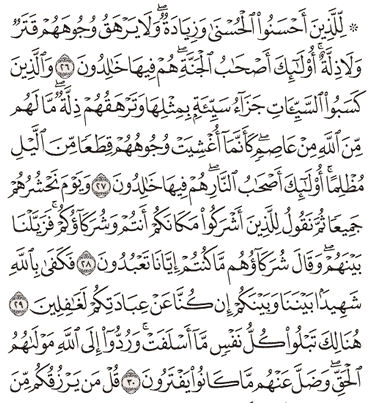 ۞ لِّلَّذِينَ أَحْسَنُوا۟ ٱلْحُسْنَىٰ وَزِيَادَةٌ ۖ وَلَا يَرْهَقُ وُجُوهَهُمْ قَتَرٌ
وَلَا ذِلَّةٌ ۚ أُو۟لَـٰٓئِكَ أَصْحَـٰبُ ٱلْجَنَّةِ ۖ هُمْ فِيهَا خَـٰلِدُونَ ٢٦ وَٱلَّذِينَ
كَسَبُوا۟ ٱلسَّيِّـَٔاتِ جَزَآءُ سَيِّئَةٍۭ بِمِثْلِهَا وَتَرْهَقُهُمْ ذِلَّةٌ ۖ مَّا لَهُم
مِّنَ ٱللَّهِ مِنْ عَاصِمٍ ۖ كَأَنَّمَآ أُغْشِيَتْ وُجُوهُهُمْ قِطَعًا مِّنَ ٱلَّيْلِ
مُظْلِمًا ۚ أُو۟لَـٰٓئِكَ أَصْحَـٰبُ ٱلنَّارِ ۖ هُمْ فِيهَا خَـٰلِدُونَ ٢٧ وَيَوْمَ نَحْشُرُهُمْ
جَمِيعًا ثُمَّ نَقُولُ لِلَّذِينَ أَشْرَكُوا۟ مَكَانَكُمْ أَنتُمْ وَشُرَكَآؤُكُمْ ۚ فَزَيَّلْنَا
بَيْنَهُمْ ۖ وَقَالَ شُرَكَآؤُهُم مَّا كُنتُمْ إِيَّانَا تَعْبُدُونَ ٢٨ فَكَفَىٰ بِٱللَّهِ
شَهِيدًۢا بَيْنَنَا وَبَيْنَكُمْ إِن كُنَّا عَنْ عِبَادَتِكُمْ لَغَـٰفِلِينَ ٢٩
هُنَالِكَ تَبْلُوا۟ كُلُّ نَفْسٍ مَّآ أَسْلَفَتْ ۚ وَرُدُّوٓا۟ إِلَى ٱللَّهِ مَوْلَىٰهُمُ
ٱلْحَقِّ ۖ وَضَلَّ عَنْهُم مَّا كَانُوا۟ يَفْتَرُونَ ٣٠ قُلْ مَن يَرْزُقُكُم مِّنَ